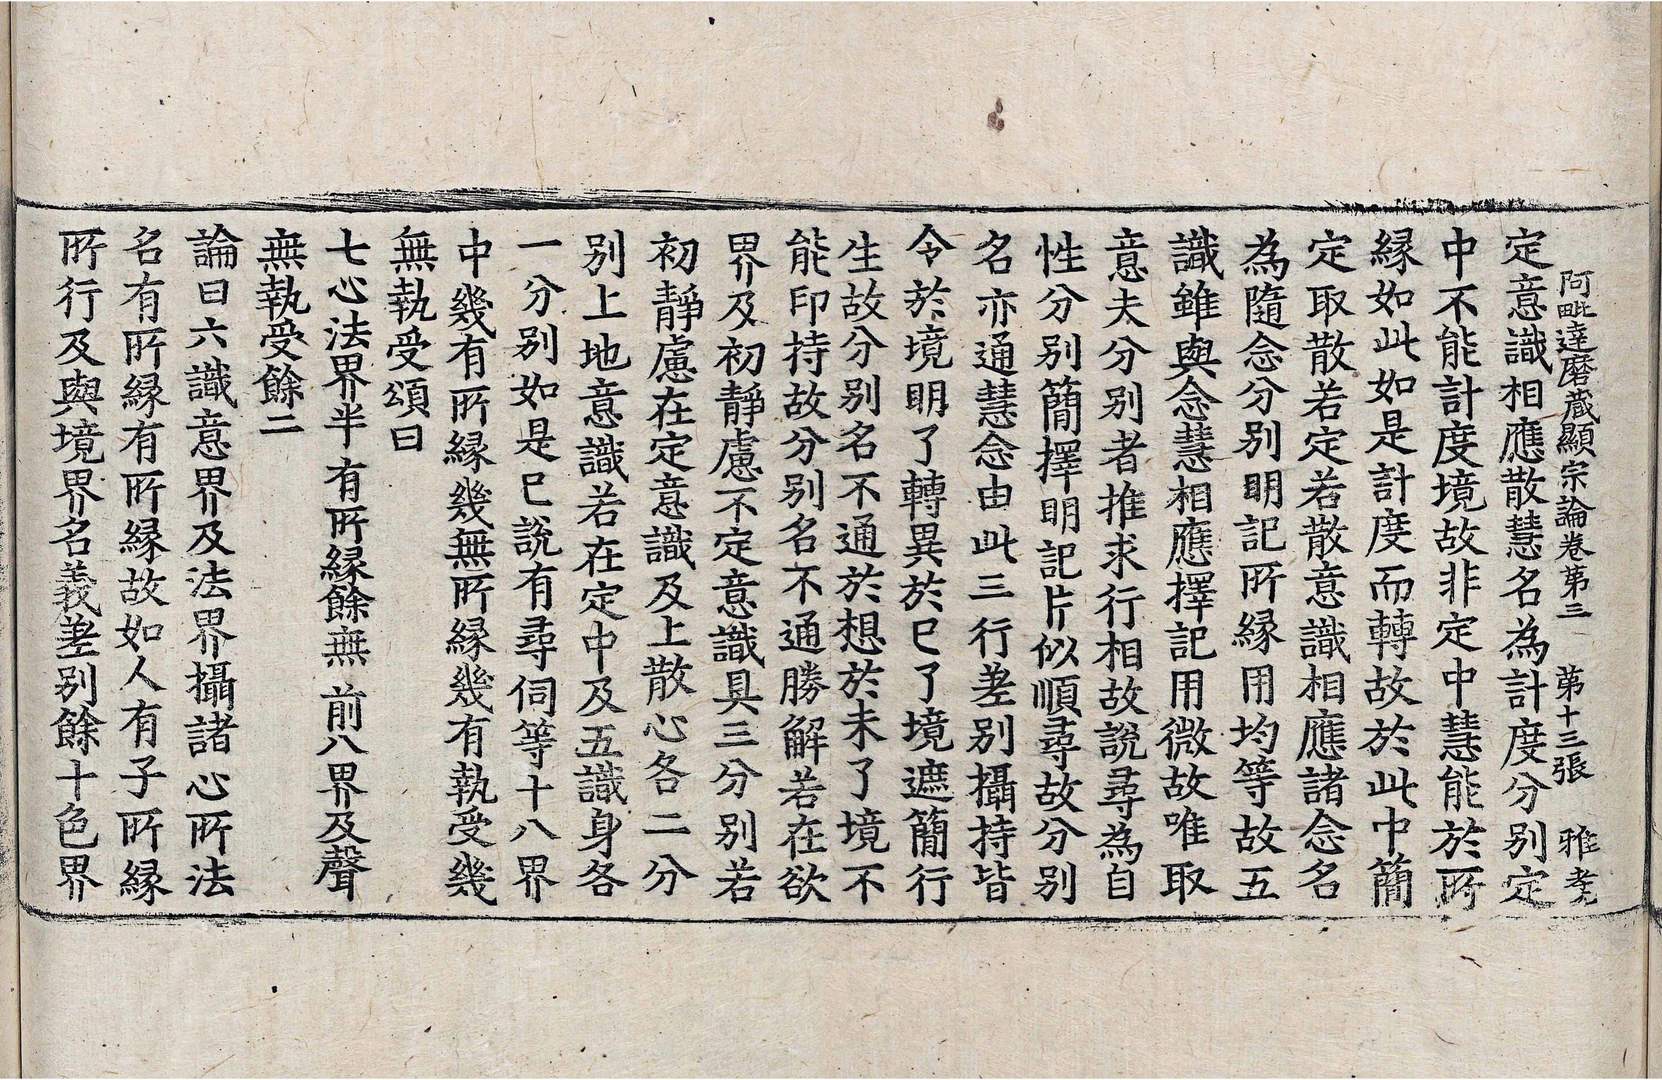 阿毗達磨藏顯宗論卷第三　第十三張　雅
定意識相應散慧名為計度分别定
中不能計度境故非定中慧能於所
緣如此如是計度而轉故於此中簡
定取散若定若散意識相應諸念名
為隨念分别明記所緣用均等故五
識雖與念慧相應擇記用微故唯取
意夫分别者推求行相故說尋為自
性分别簡擇明記片似順尋故分别
名亦通慧念由此三行差别攝持皆
令於境明了轉異於已了境遮簡行
生故分别名不通於想於未了境不
能印持故分别名不通勝解若在欲
界及初靜慮不定意識具三分别若
初靜慮在定意識及上散心各二分
别上地意識若在定中及五識身各
一分别如是已說有尋伺等十八界
中幾有所緣幾無所緣幾有執受幾
無執受頌曰
七心法界半　有所緣餘無　前八界及聲
無執受餘二
論曰六識意界及法界攝諸心所法
名有所緣有所緣故如人有子所緣
所行及與境界名義差别餘十色界